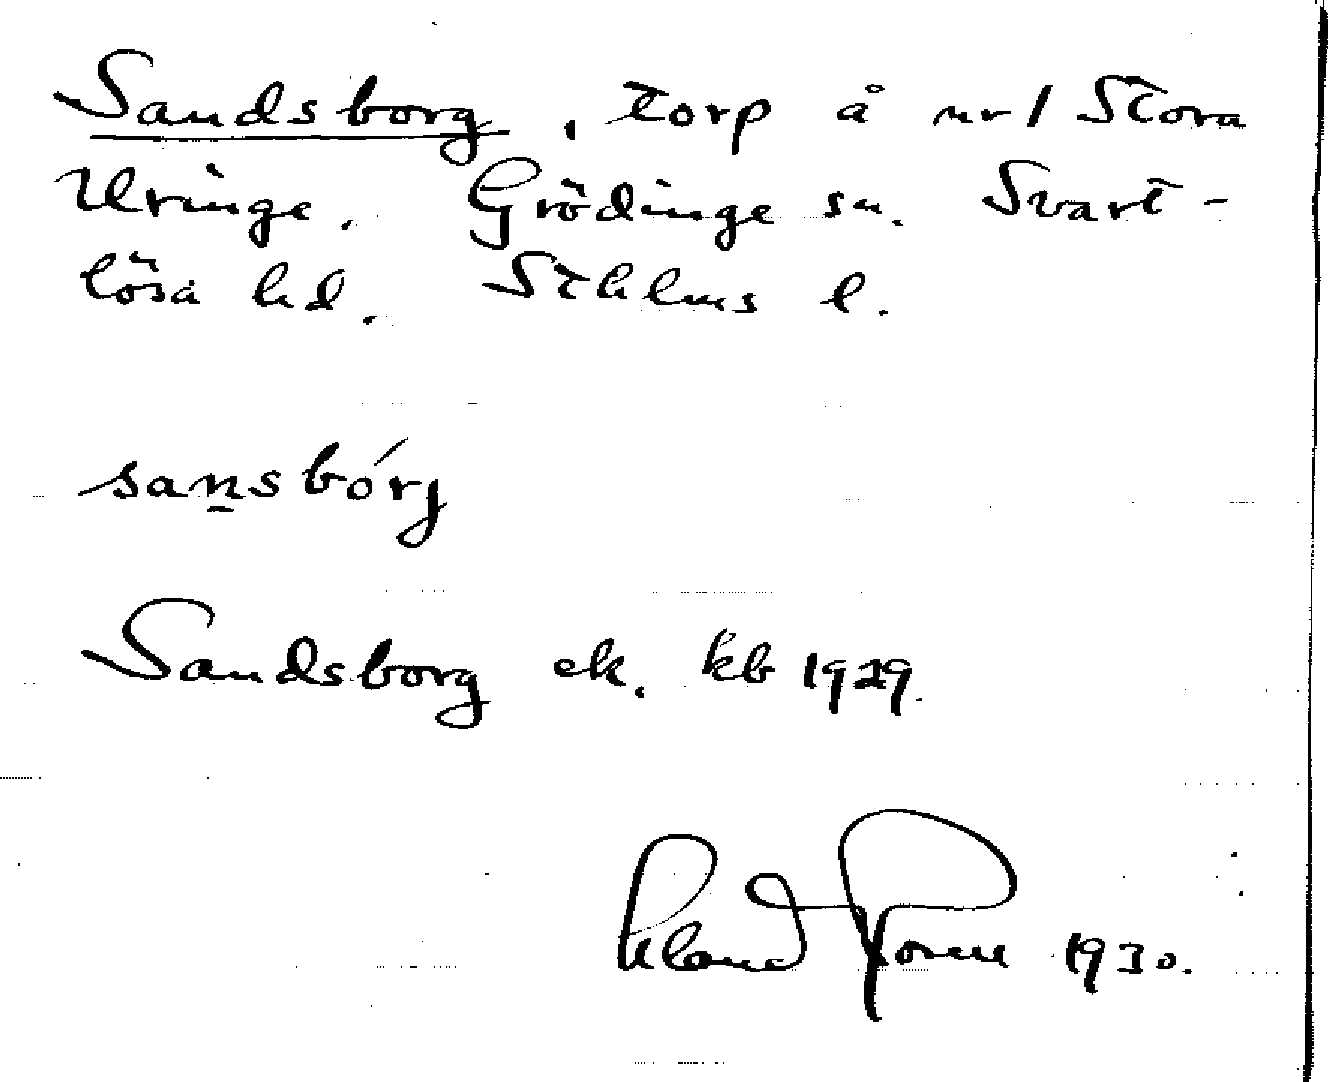 Sandsborg, torp å nr 1 Stora
Uringe. Grödinge sn. Svart-
lösa hd. Sthlms l.
san̲sbórj
Sandsborg ek. kb 1929.
1930.